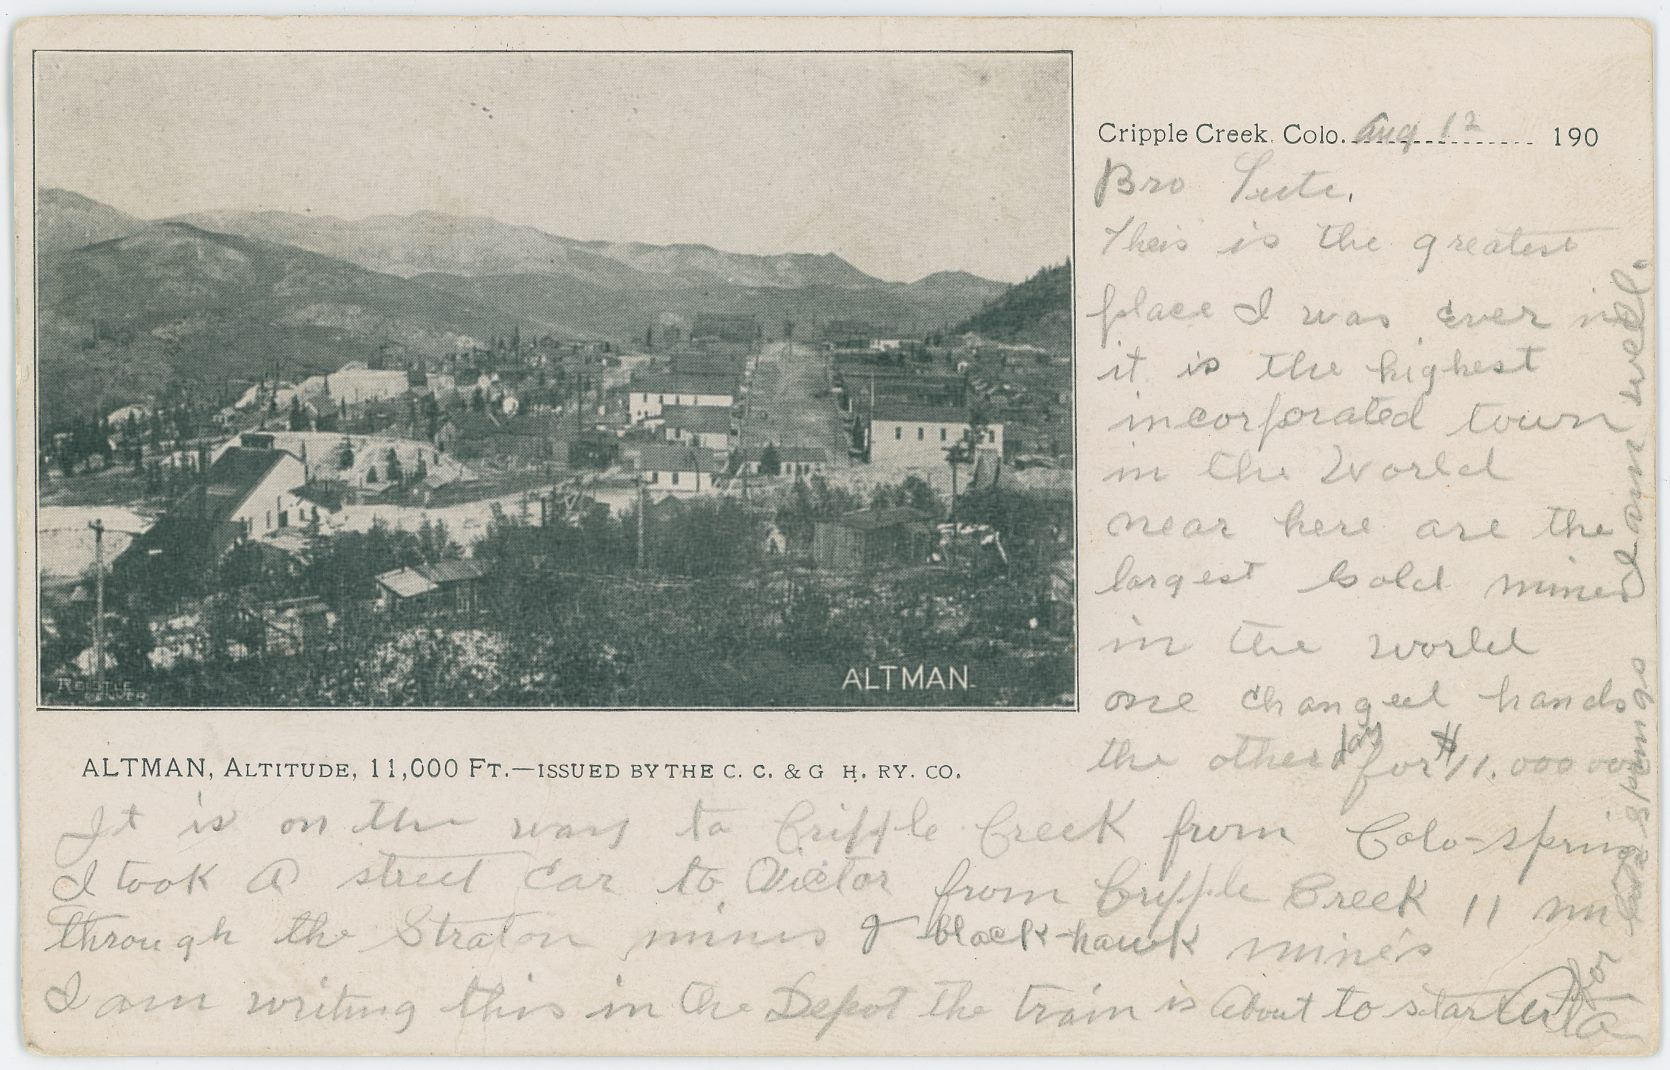 Cripple Creek, Colo. Aug 12 190
Bro
Theis is the greatest
place I was ever in
it is the highest
incorporated town
in the World
near here are the
largest Gold mines
in the world
one changed hands
the other day for $11.000 000
ALTMAN.
ALTMAN, ALTITUDE, 11,000 FT.—ISSUED BY THE C. C. & G H. RY. CO.
It is on the way to Cripple Creek from Colo-spring
I took a street car to Victor from Cripple Creek 11 mi
through the Straton mines & black-hawk mine's
I am writing this in the Depot the train is about to start
for Colo Springs
I am well.